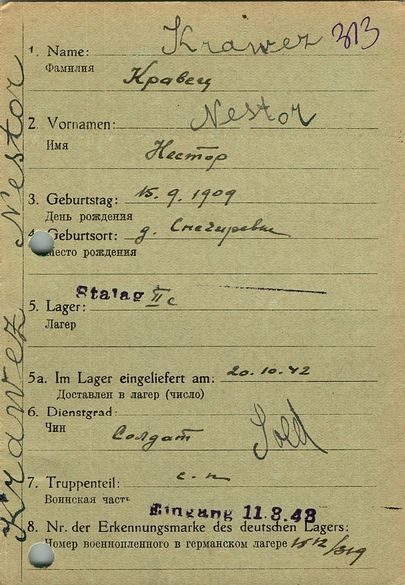 Krawez 313
1. Name:
Фамилия
Кравец
Nestor
2. Vornamen:
Имя
Нестор
3. Geburtstag: 15. 9. 1909
День рождения
4. Geburtsort: д. Снегиревка
Место рождения
Stalag II c
5. Lager:
Лагер
5a. Im Lager eingeliefert am: 20. 10. 42
Доставлен в лагер (число)
6. Dienstgrad:
Чин
Солдат Sold
7. Truppenteil: с. п
Воинская часть
Eingang 11.8.43
8. Nr. der Erkennungsmarke des deutschen Lagers:
Номер военнопленного в германском лагере /319
Krawez Nestor